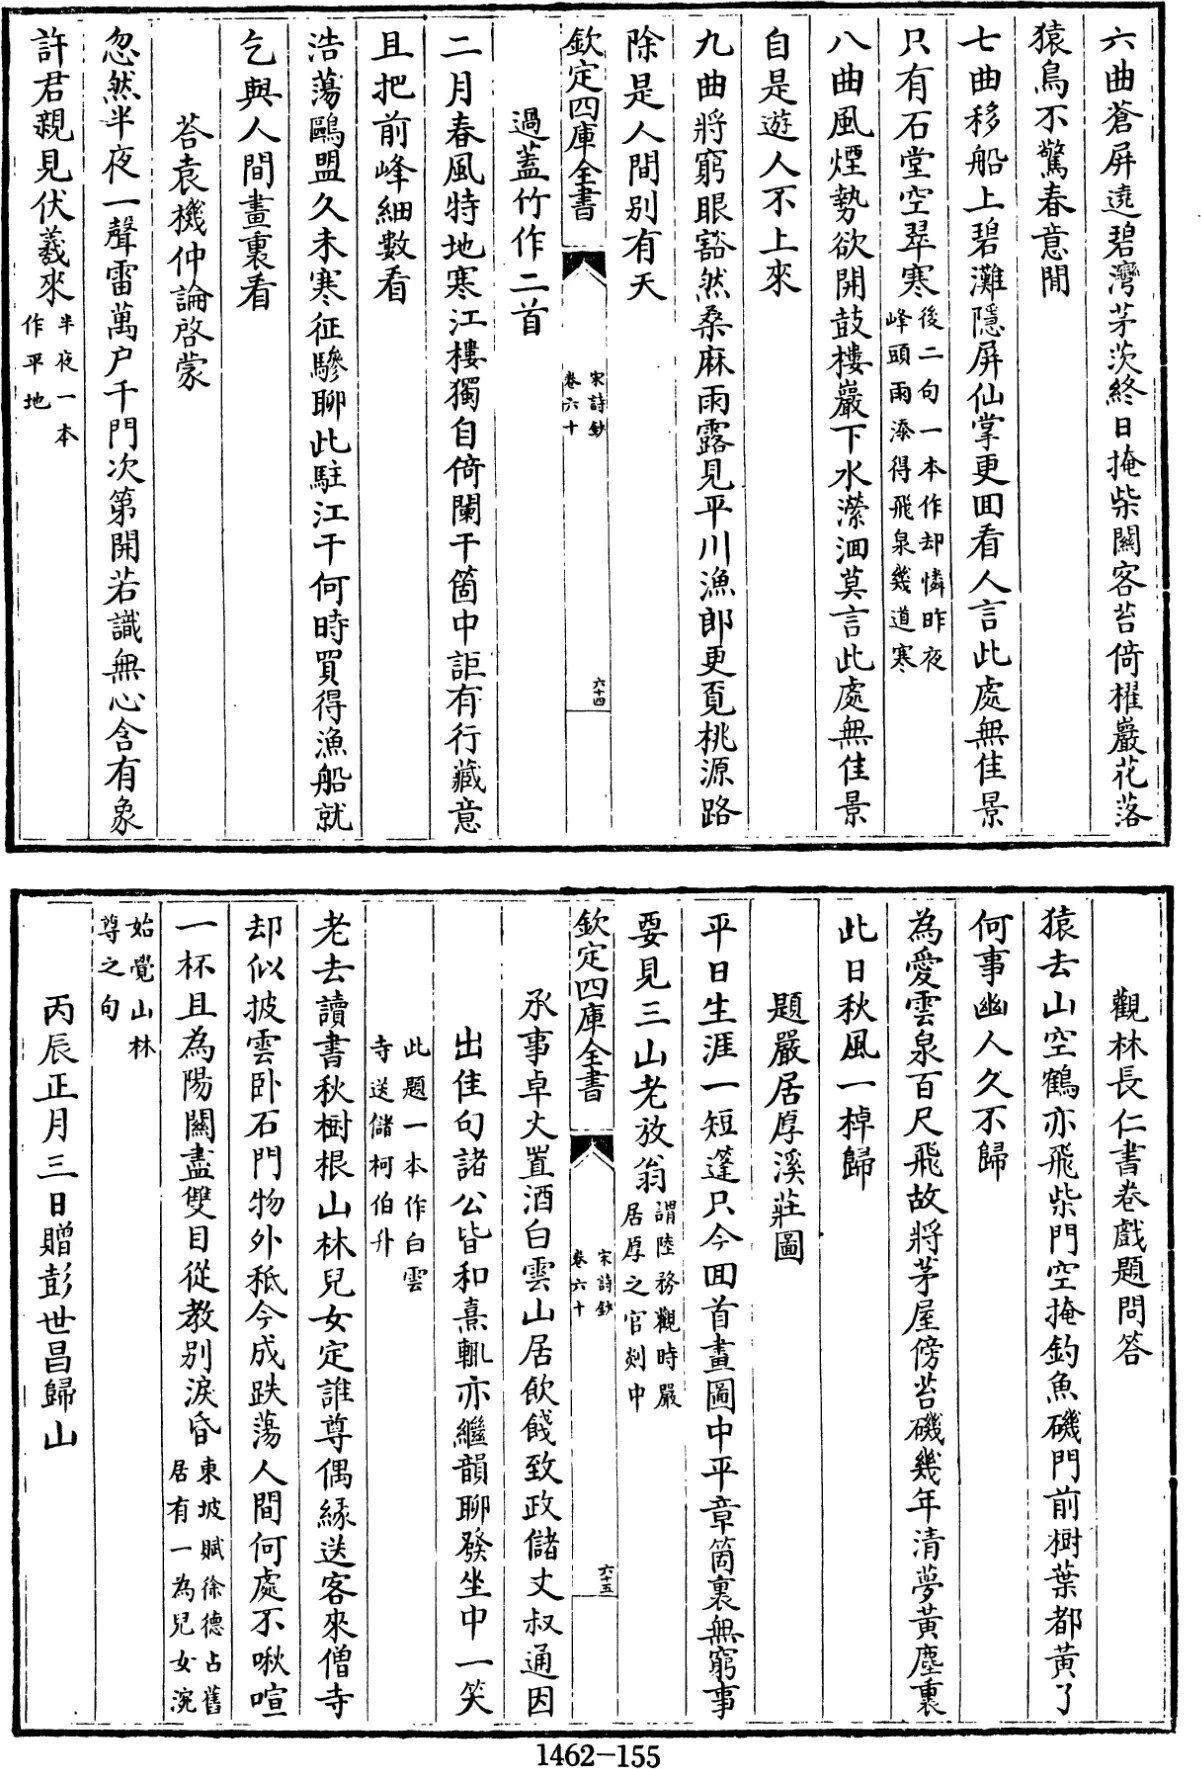 六曲蒼屏遶碧灣茅茨終日掩柴關客苔倚櫂巖花落
猿鳥不驚春意閒
七曲移船上碧灘隱屏仙掌更囬看人言此處無佳景
只有石堂空翠寒後二句一本作却憐昨夜峰頭雨添得飛泉幾道寒
八曲風煙勢欲開鼓樓巖下水瀠洄莫言此處無佳景
自是遊人不上來
九曲將窮眼豁然桑麻雨露見平川漁郎更覔桃源路
除是人間别有天
欽定四庫全書
宋詩鈔
卷六十
六十四
過蓋竹作二首
二月春風特地寒江樓獨自倚闌干箇中詎有行藏意
且把前峰細數看
浩蕩鷗盟久未寒征驂聊此駐江干何時買得漁船就
乞與人間畫裏看
荅袁機仲論啓蒙
忽然半夜一聲雷萬户千門次第開若識無心含有象
許君親見伏羲來半夜一本作平地
觀林長仁書卷戲題問答
猿去山空鶴亦飛柴門空掩釣魚磯門前樹葉都黄了
何事幽人久不歸
為愛雲泉百尺飛故將茅屋傍苔磯幾年清夢黄塵裏
此日秋風一棹歸
題嚴居厚溪莊圖
平日生涯一短蓬只今囬首畫圖中平章箇裏無窮事
要見三山老放翁謂陸務觀時嚴居厚之官剡中
欽定四庫全書
宋詩鈔
卷六十
六十五
承事卓丈置酒白雲山居飲餞致政儲丈叔通因
出佳句諸公皆和熹輒亦繼韻聊發坐中一笑
此題一本作白雲寺送儲柯伯升
老去讀書秋樹根山林兒女定誰尊偶緣送客來僧寺
却似披雲卧石門物外秪今成跌蕩人間何處不啾喧
一杯且為陽關盡雙目從教别淚昏東坡賦徐德占舊居有一為兒女浣
始覺山林尊之句
丙辰正月三日贈彭世昌歸山
1462-155